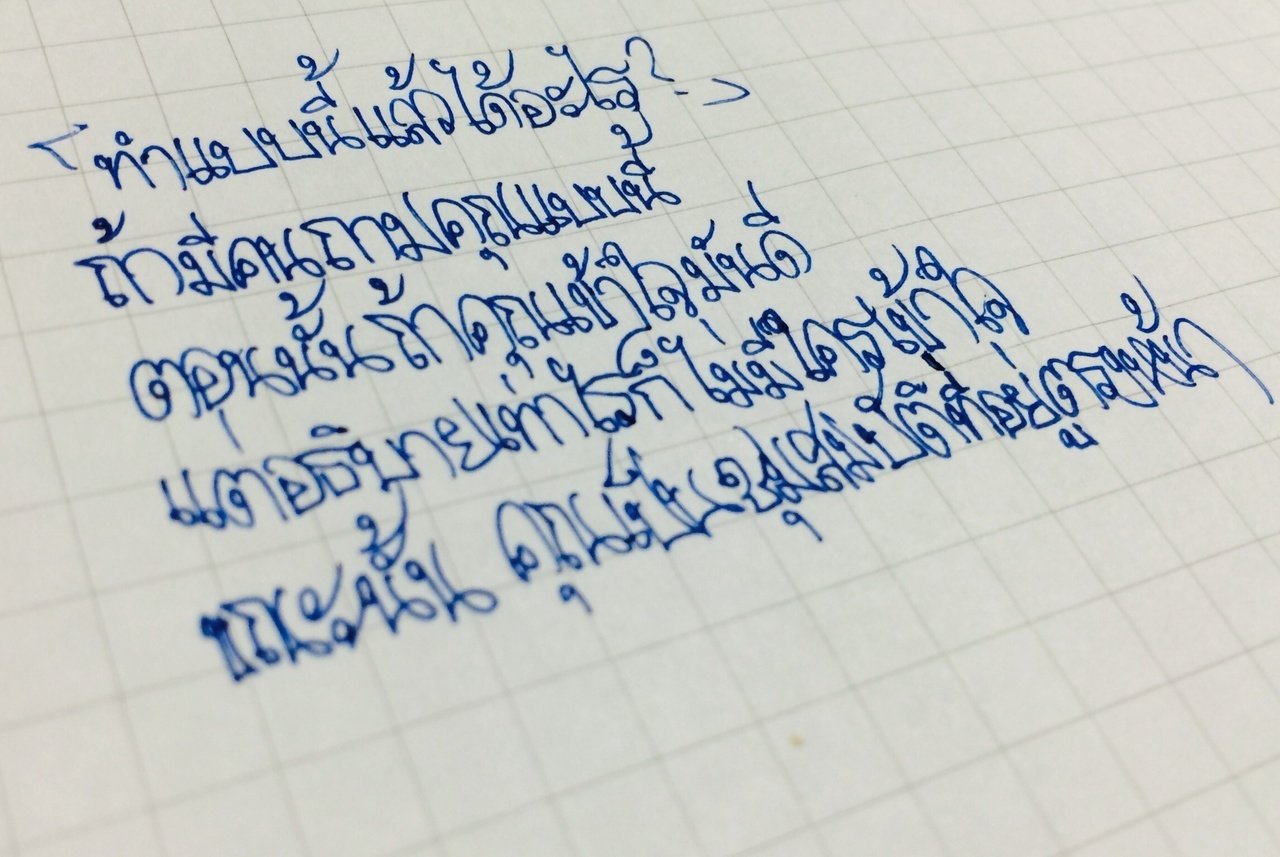 < ทำแบบนี้แล้วได้อะไร? >
ถ้ามีคนถามคุณแบบนี้
ตอนนั้นถ้าคุณเข้าใจมันดี
แต่อธิบายเท่าไรก็ไม่มีใครเข้าใจ
ขณะนั้น คุณเป็นขุมสมบัติที่อยู่ตรงหน้า